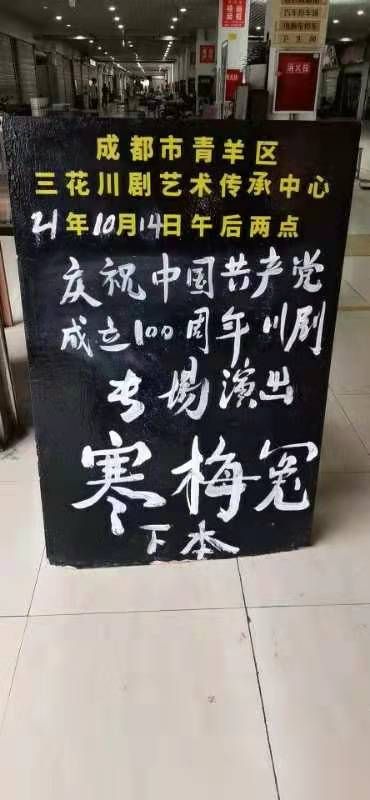 消火栓
卫生间
成都市青羊区
三花川剧艺术传承中心
21年10月14日午后两点
庆祝中国共产党
成立100周年川剧
专場演出
寒梅冤
下本